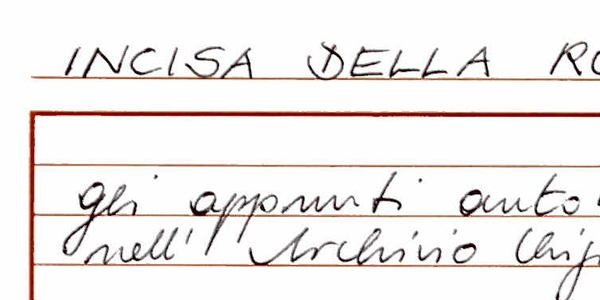 INCISA DELLA
gli appunti
nell' Archivio